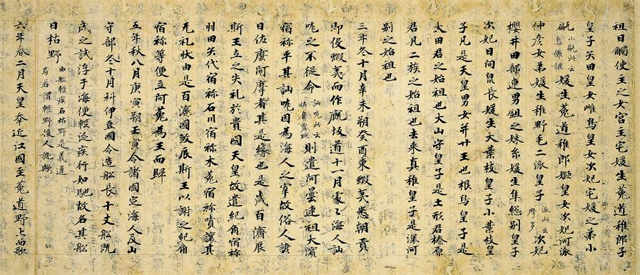 祖日觸使主之女宮主宅媛生菟道稚郎子
皇子矢田皇女雌鳥皇女次妃宅媛之弟小
甂媛生菟道稚郎姫皇女次妃河派
仲彦女弟媛生稚野毛二派皇子派此云摩多次妃
櫻井田部連男鉏之妹糸媛生隼総別皇子
次妃日向泉長媛生大葉枝皇子小葉枝皇
子凡是天皇男女并廿王也根鳥皇子是
大田君之始祖也大山守皇子是土形君榛原
君凡二族之始祖也去来真稚皇子是深河
別之始祖也
三年冬十月辛未朔癸酉東蝦夷悉朝貢
即役蝦夷而作厩坂道十一月處々海人訕
哤之不従命則遣阿曇連祖大濱
宿祢平其訕哤因為海人之宰故俗人諺
曰佐麼阿摩者其是縁也是歳百濟辰
斯王立之失礼於貴國天皇故遣紀角宿祢
羽田矢代宿祢石川宿祢木菟宿祢嘖讓其
无礼状由是百濟國殺辰斯王以謝之紀角
宿祢等便立阿花為王而歸
五年秋八月庚寅朔壬寅令諸國定海人及山
守部冬十月科伊豆國令造船長十丈船既
成之試浮于海便輕泛疾行如馳故名其船
曰枯野由船輕疾名枯野是義違焉若謂輕野後人訛歟
六年春二月天皇幸近江國至菟道野上而歌